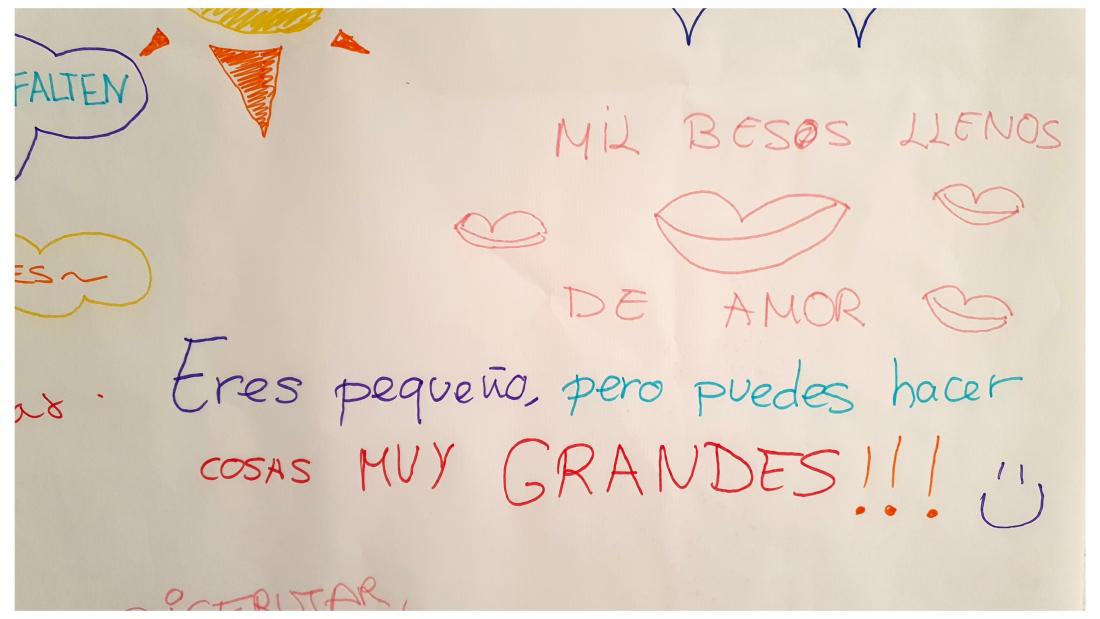 FALTEN
MIL BESOS LLENOS
DE AMOR
ES~
Eres pequeño, pero puedes hacer
COSAS MUY GRANDES!!!
DISFRUTAR,